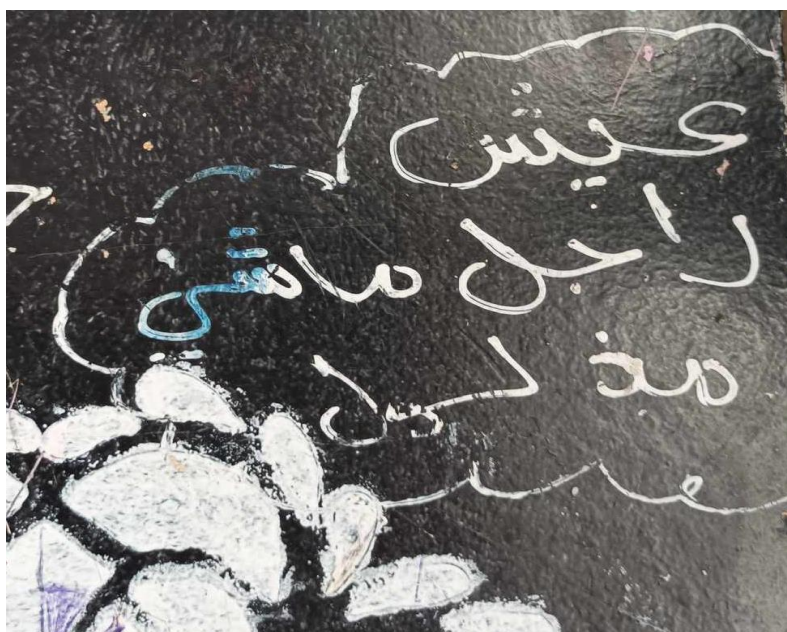 عيش
راجل ماشي
مذلول